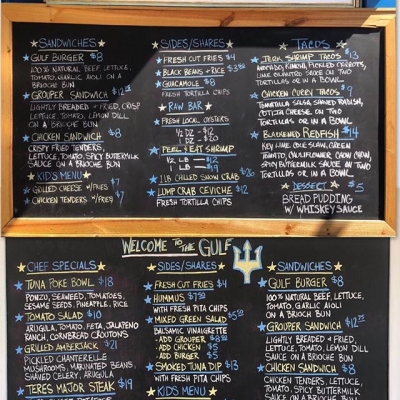 SANDWICHES
GULF BURGER $8
100% NATURAL BEEF, LETTUCE,
TOMATO, GARLIC AIOLI ON A
BRIOCHE BUN
GROUPER SANDWICH $12.75
LIGHTLY BREADED + FRIED, CRISP
LETTUCE, TOMATO, LEMON DILL
ON A BRIOCHE BUN
CHICKEN SANDWICH $8
CRISPY FRIED TENDERS,
LETTUCE, TOMATO, SPICY BUTTERMILK
SAUCE ON A BRIOCHE BUN
KID'S MENU
GRILLED CHEESE w/FRIES $7
CHICKEN TENDERS w/FRIES $7
SIDES/SHARES
FRESH CUT FRIES $4
BLACK BEANS + RICE $3.50
GUACAMOLE $8
FRESH TORTILLA CHIPS
RAW BAR
FRESH LOCAL OYSTERS
1/2 DZ - $12
1 DZ - $20
PEEL & EAT SHRIMP
1/2 LB $12
1 LB
1LB CHILLED SNOW CRAB $20
LUMP CRAB CEVICHE $12
FRESH TORTILLA CHIPS
TACOS
JERK SHRIMP TACOS $13
AVOCADO, KIMCHI, PICKLED CARROTS,
LIME CILANTRO SAUCE ON TWO
TORTILLAS OR IN A BOWL
CHICKEN CURRY TACOS $9
TOMATILLA SALSA, SHAVED RADISH,
COTIJA CHEESE ON TWO
TORTILLAS OR IN A BOWL
BLACKENED REDFISH $14
KEY LIME COLE SLAW, GREEN
TOMATO, CAULIFLOWER CHOW CHOW,
SPICY BUTTERMILK SAUCE ON TWO
TORTILLAS OR IN A BOWL
DESSERT $5
BREAD PUDDING
W/ WHISKEY SAUCE
WELCOME TO THE GULF
CHEF SPECIALS
TUNA POKE BOWL $18
PONZU, SEAWEED, TOMATOES,
SESAME SEEDS, PINEAPPLE, RICE
TOMATO SALAD $10
ARUGULA, TOMATO, FETA, JALAPENO
RANCH, CORNBREAD CROUTONS
GRILLED AMBERJACK $21
PICKLED CHANTERELLE
MUSHROOMS, MARINATED BEANS,
SHAVED CELERY, ARUGULA
TERES MAJOR STEAK $19
SIDES/SHARES
FRESH CUT FRIES $4
HUMMUS $7.50
WITH FRESH PITA CHIPS
MIXED GREEN SALAD $5.50
BALSAMIC VINAIGRETTE
- ADD GROUPER $8
- ADD CHICKEN $5
- ADD BURGER $5
SMOKED TUNA DIP $13
WITH FRESH PITA CHIPS
KID'S MENU
SANDWICHES
GULF BURGER $8
100% NATURAL BEEF, LETTUCE,
TOMATO, GARLIC AIOLI
ON A BRIOCH BUN
GROUPER SANDWICH $12.75
LIGHTLY BREADED + FRIED,
LETTUCE, TOMATO, LEMON DILL
SAUCE ON A BRIOCHE BUN
CHICKEN SANDWICH $8
CHICKEN TENDERS, LETTUCE,
TOMATO, SPICY BUTTERMILK
SAUCE ON A BRIOCHE BUN